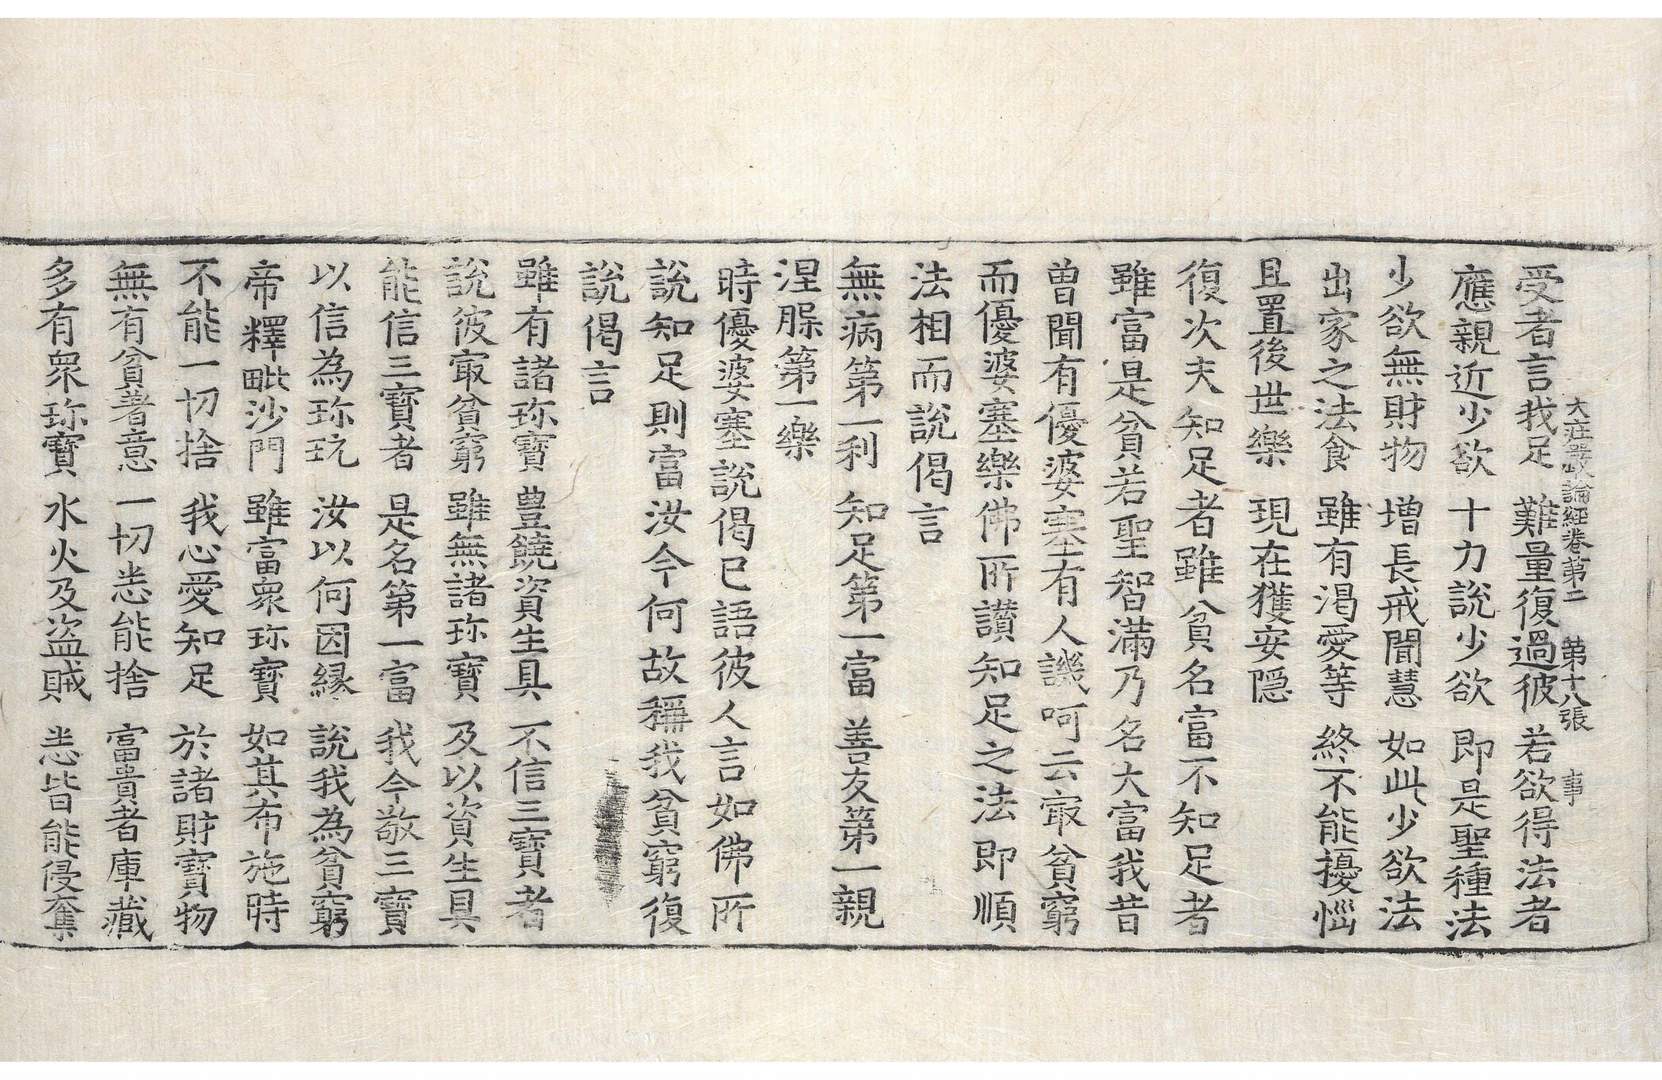 大莊嚴論經卷第二 第十八張 事
受者言我足 難量復過彼 若欲得法者
應親近少欲 十力說少欲 即是聖種法
少欲無財物 增長戒聞慧 如此少欲法
出家之法食 雖有渴愛等 終不能擾惱
且置後世樂 現在獲安隠
復次夫知足者雖貧名富不知足者
雖富是貧若聖智滿乃名大富我昔
曾聞有優婆塞有人譏呵云㝡貧窮
而優婆塞樂佛所讃知足之法即順
法相而說偈言
無病第一利 知足第一富 善友第一親
涅槃第一樂
時優婆塞說偈已語彼人言如佛所
說知足則富汝今何故稱我貧窮復
說偈言
雖有諸珎寶 豊饒資生具 不信三寶者
說彼㝡貧窮 雖無諸珎寶 及以資生具
能信三寶者 是名第一富 我今敬三寶
以信為珎玩 汝以何因緣 說我為貧窮
帝釋毗沙門 雖富衆珎寶 如其布施時
不能一切捨 我心愛知足 於諸財寶物
無有貧著意 一切悉能捨 富貴者庫藏
多有衆珎寶 水火及盜賊 悉皆能侵奪